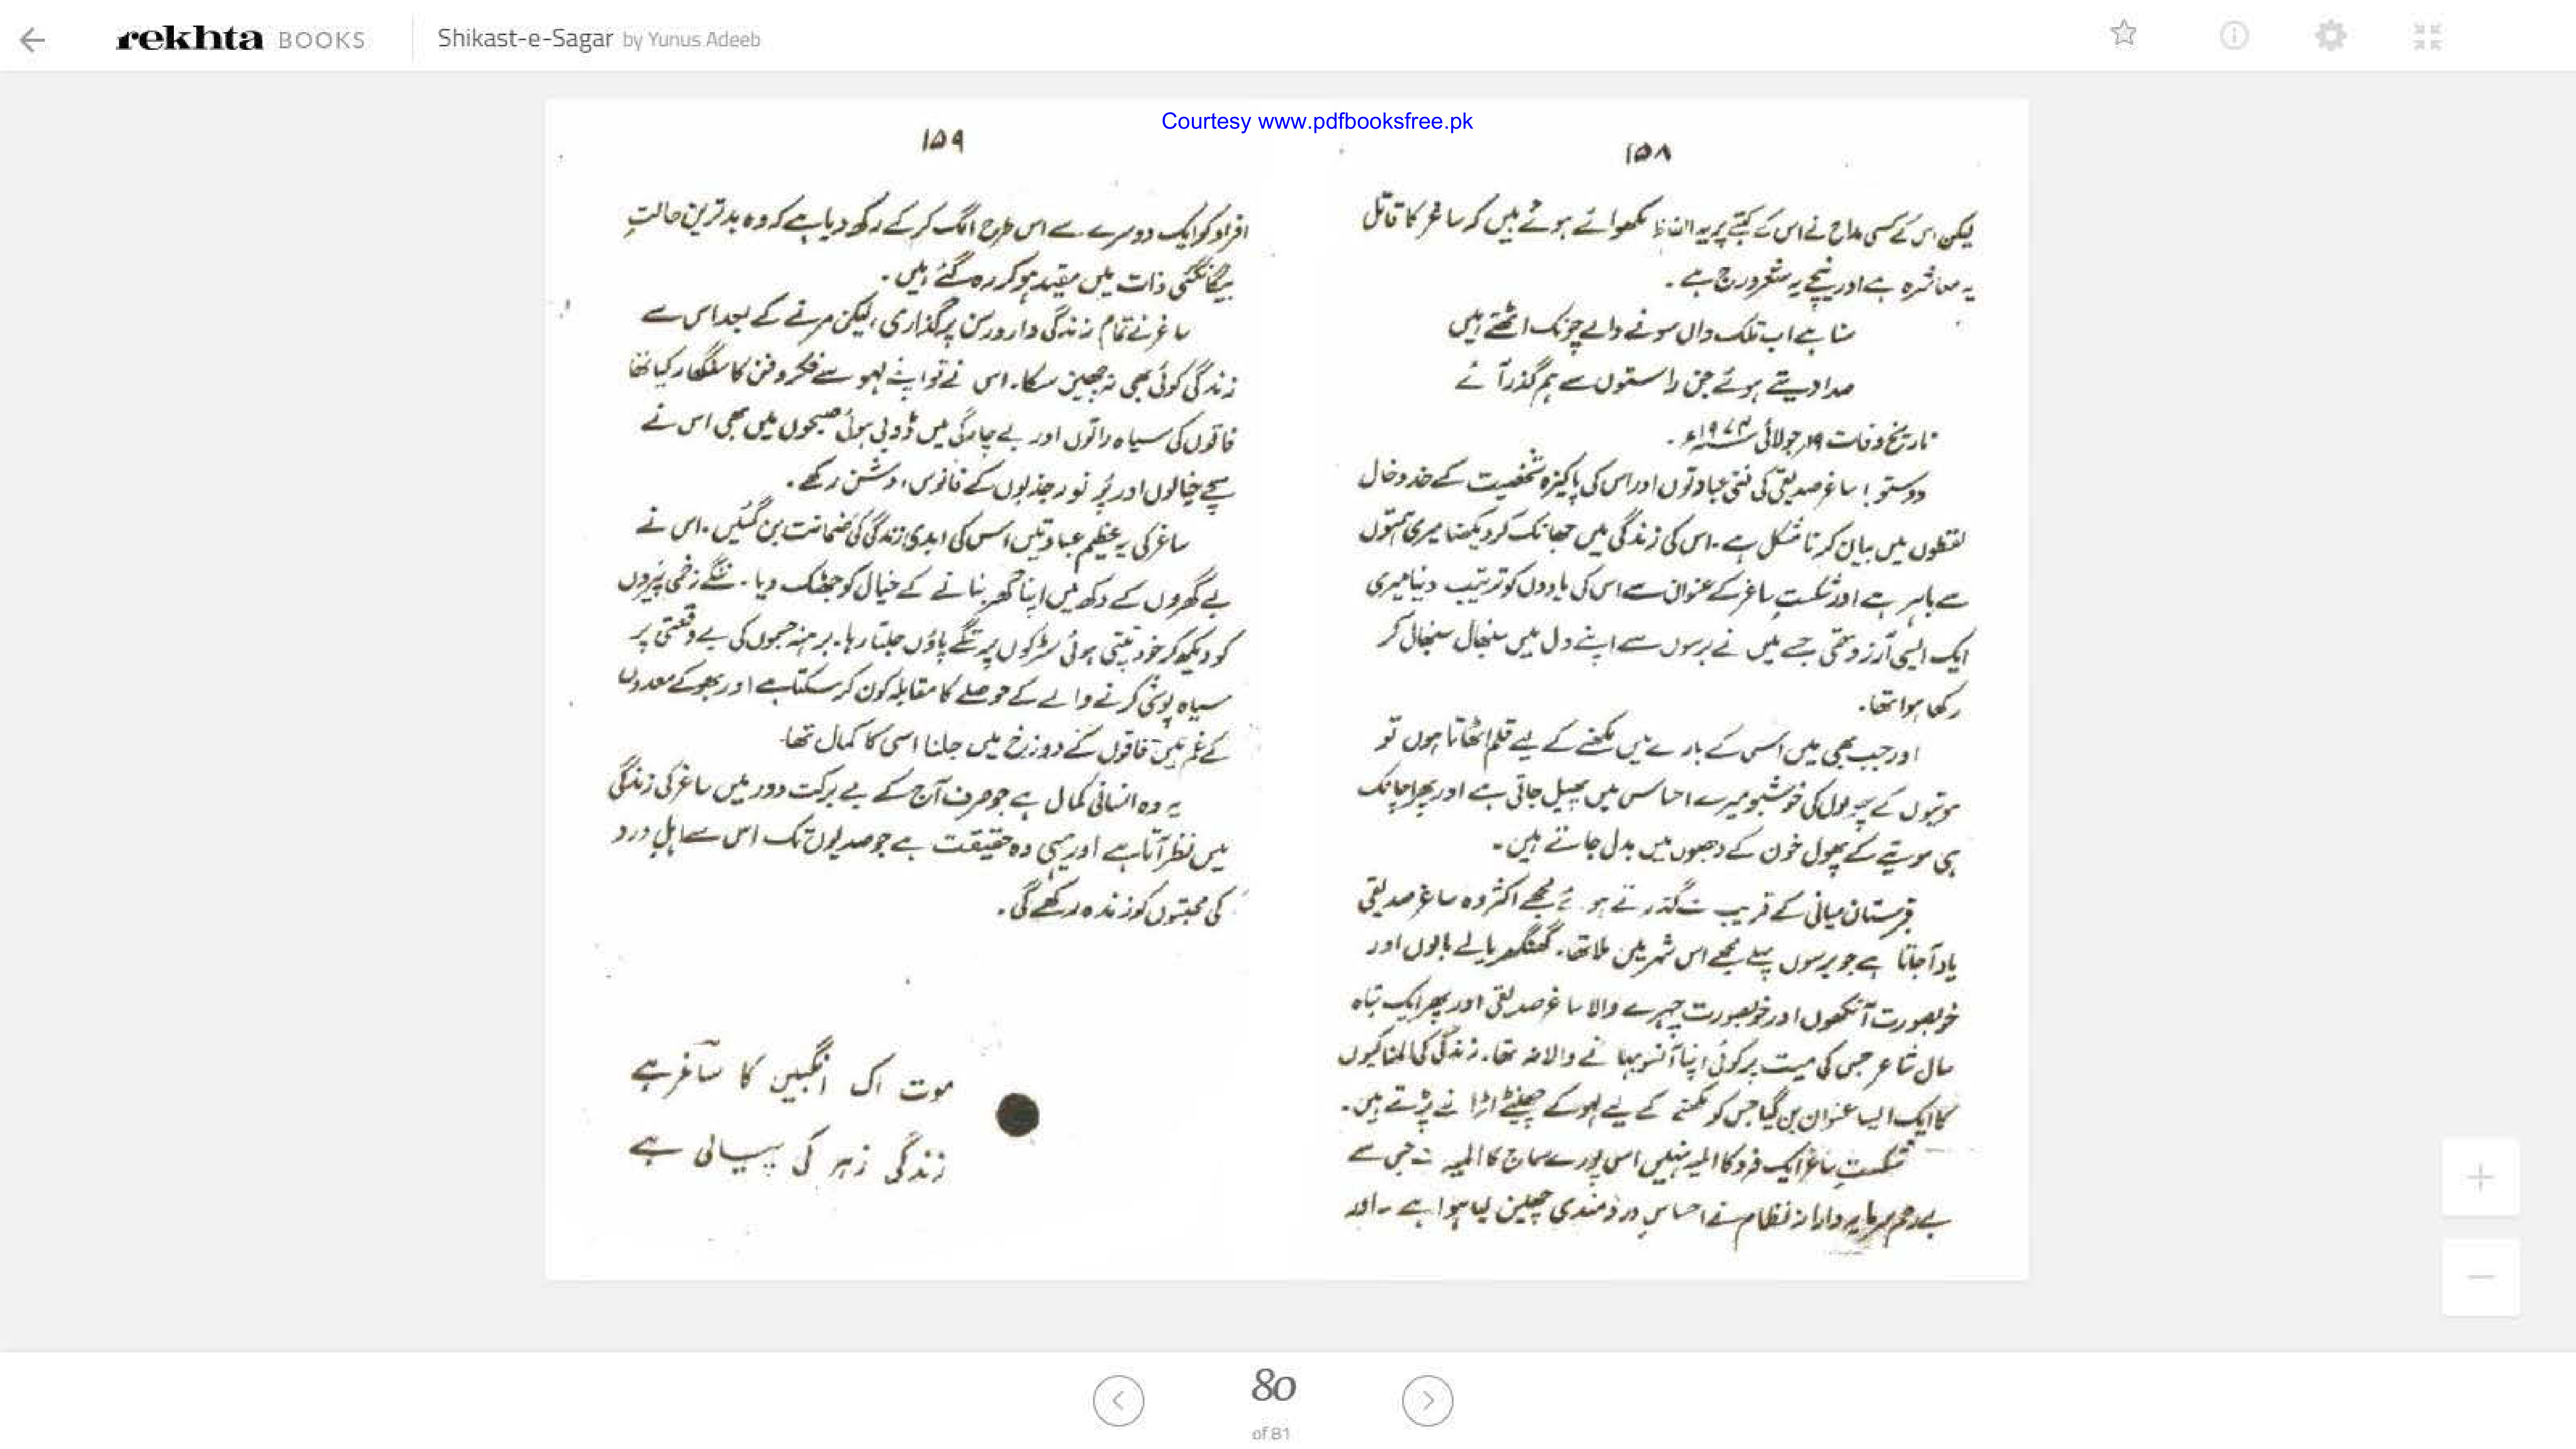 rekhta BOOKS
Shikast-e-Sagar by Yunus Adeeb
Courtesy www.pdfbooksfree.pk
۱۵۸
لیکن اس کے کسی مداح نے اس کے کتبے پر یہ الفاظ لکھوائے ہوئے ہیں کہ ساغر کا قاتل
یہ معاشرہ ہے اور نیچے یہ شعر درج ہے ۔
سنا ہے اب تلک واں سونے والے چونک اٹھتے ہیں
صدا دیتے ہوئے جن راستوں سے ہم گذر آئے
تاریخ وفات ۱۹ جولائی ۱۹۷۴ء ۔
دوستو! ساغر صدیقی کی فنی عبادتوں اور اس کی پاکیزہ شخصیت کے خدوخال
لفظوں میں بیان کرنا مشکل ہے ۔ اس کی زندگی میں جھانک کر دیکھنا میری ہمتوں
سے باہر ہے اور شکستِ ساغر کے عنوان سے اس کی یادوں کو ترتیب دینا میری
ایک ایسی آرزو تھی جسے میں نے برسوں سے اپنے دل میں سنبھال سنبھال کر
رکھا ہوا تھا ۔
اور جب بھی میں اس کے بارے میں لکھنے کے لیے قلم اٹھاتا ہوں تو
موتیوں کے پھولوں کی خوشبو میرے احساس میں پھیل جاتی ہے اور پھر اچانک
ہی موتیے کے پھول خون کے دھبوں میں بدل جاتے ہیں ۔
قبرستان میانی کے قریب سے گذرتے ہوئے مجھے اکثر وہ ساغر صدیقی
یاد آجاتا ہے جو برسوں پہلے مجھے اس شہر میں ملا تھا ۔ گھنگھریالے بالوں اور
خوبصورت آنکھوں اور خوبصورت چہرے والا ساغر صدیقی اور پھر ایک تباہ
حال شاعر جس کی میت پر کوئی اپنا آنسو بہانے والا نہ تھا ۔ زندگی کی المناکیوں
کا ایک ایسا عنوان بن گیا جس کو لکھنے کے لیے لہو کے چھینٹے اڑانے پڑتے ہیں ۔
شکستِ ساغر ایک فرد کا المیہ نہیں اس پورے سماج کا المیہ ہے جس سے
بے رحم سرمایہ دارانہ نظام نے احساسِ دردمندی چھین لیا ہوا ہے ۔ اور
۱۵۹
افراد کو ایک دوسرے سے اس طرح الگ کر کے رکھ دیا ہے کہ وہ بدترین حالتِ
بیگانگئی ذات میں مقید ہو کر رہ گئے ہیں ۔
ساغر نے تمام زندگی دار و رسن پر گذاری، لیکن مرنے کے بعد اس سے
زندگی کوئی بھی نہ چھین سکا ۔ اس نے تو اپنے لہو سے فکر و فن کا سنگھار کیا تھا
فاقوں کی سیاہ راتوں اور بے چارگی میں ڈوبی ہوئی صبحوں میں بھی اس نے
سچے خیالوں اور پُر نور جذبوں کے فانوس روشن رکھے ۔
ساغر کی یہ عظیم عبادتیں اس کی ابدی زندگی کی ضمانت بن گئیں ۔ اس نے
بے گھروں کے دکھ میں اپنا گھر بنانے کے خیال کو جھٹک دیا ۔ ننگے زخمی پیروں
کو دیکھ کر خود تپتی ہوئی سڑکوں پر ننگے پاؤں چلتا رہا ۔ برہنہ جسموں کی بے وقعتی پر
سیاہ پوشی کرنے والے کے حوصلے کا مقابلہ کون کر سکتا ہے اور بھوکے معدوں
کے غم میں فاقوں کے دوزخ میں جلنا اسی کا کمال تھا ۔
یہ وہ انسانی کمال ہے جو صرف آج کے بے برکت دور میں ساغر کی زندگی
میں نظر آتا ہے اور یہی وہ حقیقت ہے جو صدیوں تک اس سے اہلِ درد
کی محبتوں کو زندہ رکھے گی ۔
موت اک انگبیں کا ساغر ہے
زندگی زہر کی پیالی ہے
80
of 81